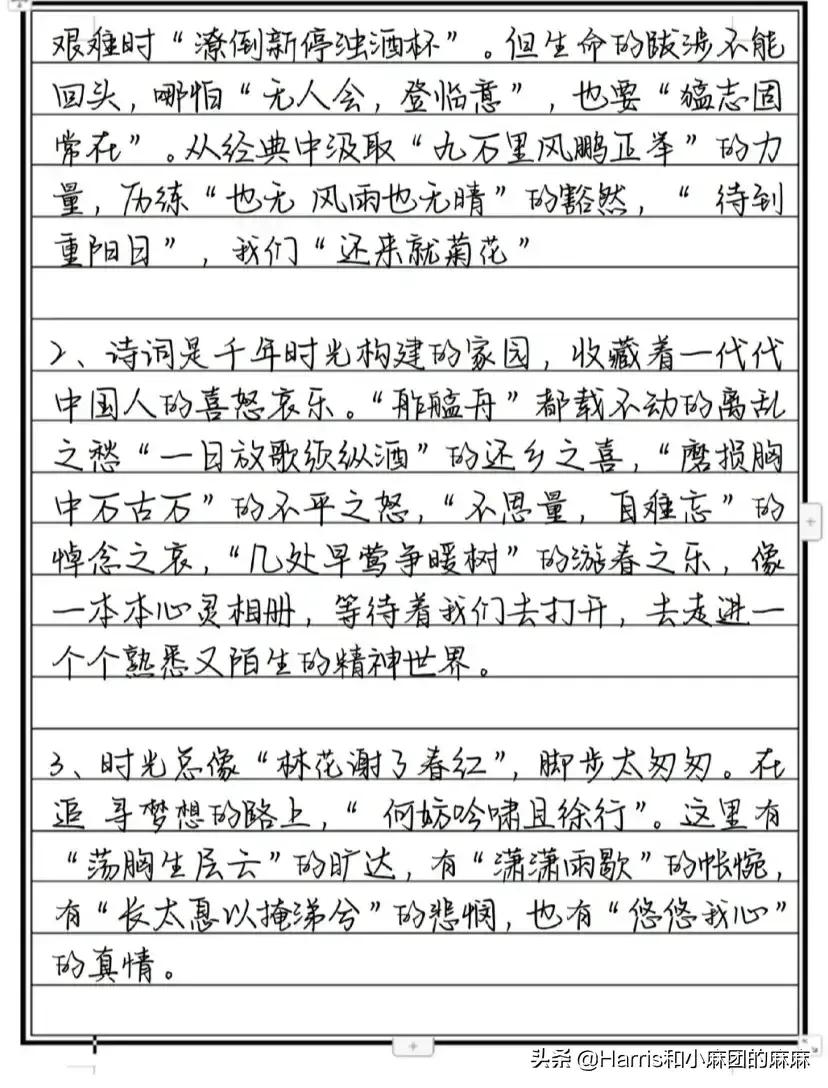 艰难时“潦倒新停浊酒杯”。但生命的跋涉不能
回头，哪怕“无人会，登临意”，也要“猛志固
常在”。从经典中汲取“九万里风鹏正举”的力
量，历练“也无 风雨也无晴”的豁然，“ 待到
重阳日”，我们“还来就菊花”
2、诗词是千年时光构建的家园，收藏着一代代
中国人的喜怒哀乐。“舴艋舟”都载不动的离乱
之愁“一日放歌须纵酒”的还乡之喜，“磨损胸
中万古万”的不平之怒，“不思量，自难忘”的
悼念之哀，“几处早莺争暖树”的游春之乐，像
一本本心灵相册，等待着我们去打开，去走进一
个个熟悉又陌生的精神世界。
3、时光总像“林花谢了春红”，脚步太匆匆。在
追 寻梦想的路上，“ 何妨吟啸且徐行”。这里有
“荡胸生层云”的旷达，有“潇潇雨歇”的怅惋，
有“长太息以掩涕兮”的悲悯，也有“悠悠我心”
的真情。
头条 @Harris和小麻团的麻麻